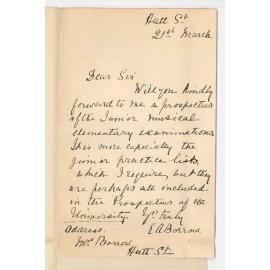 Hutt St
21st March
Dear Sir
Will you kindly
forward to me a prospectus
of the Junior musical
elementary examinations
It is more especially the
Junior practice lists,
which I require, but they
are perhaps all included
in the Prospectus of the
University. Yrs truly
Address. E A Borrow
Mrs Borrow
Hutt St